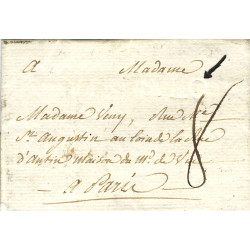 A Madame
Madame Vény, Rue Nve
St Augustin au coin de la Rue
d'Antin Maison du Md de Vin
a Paris
8